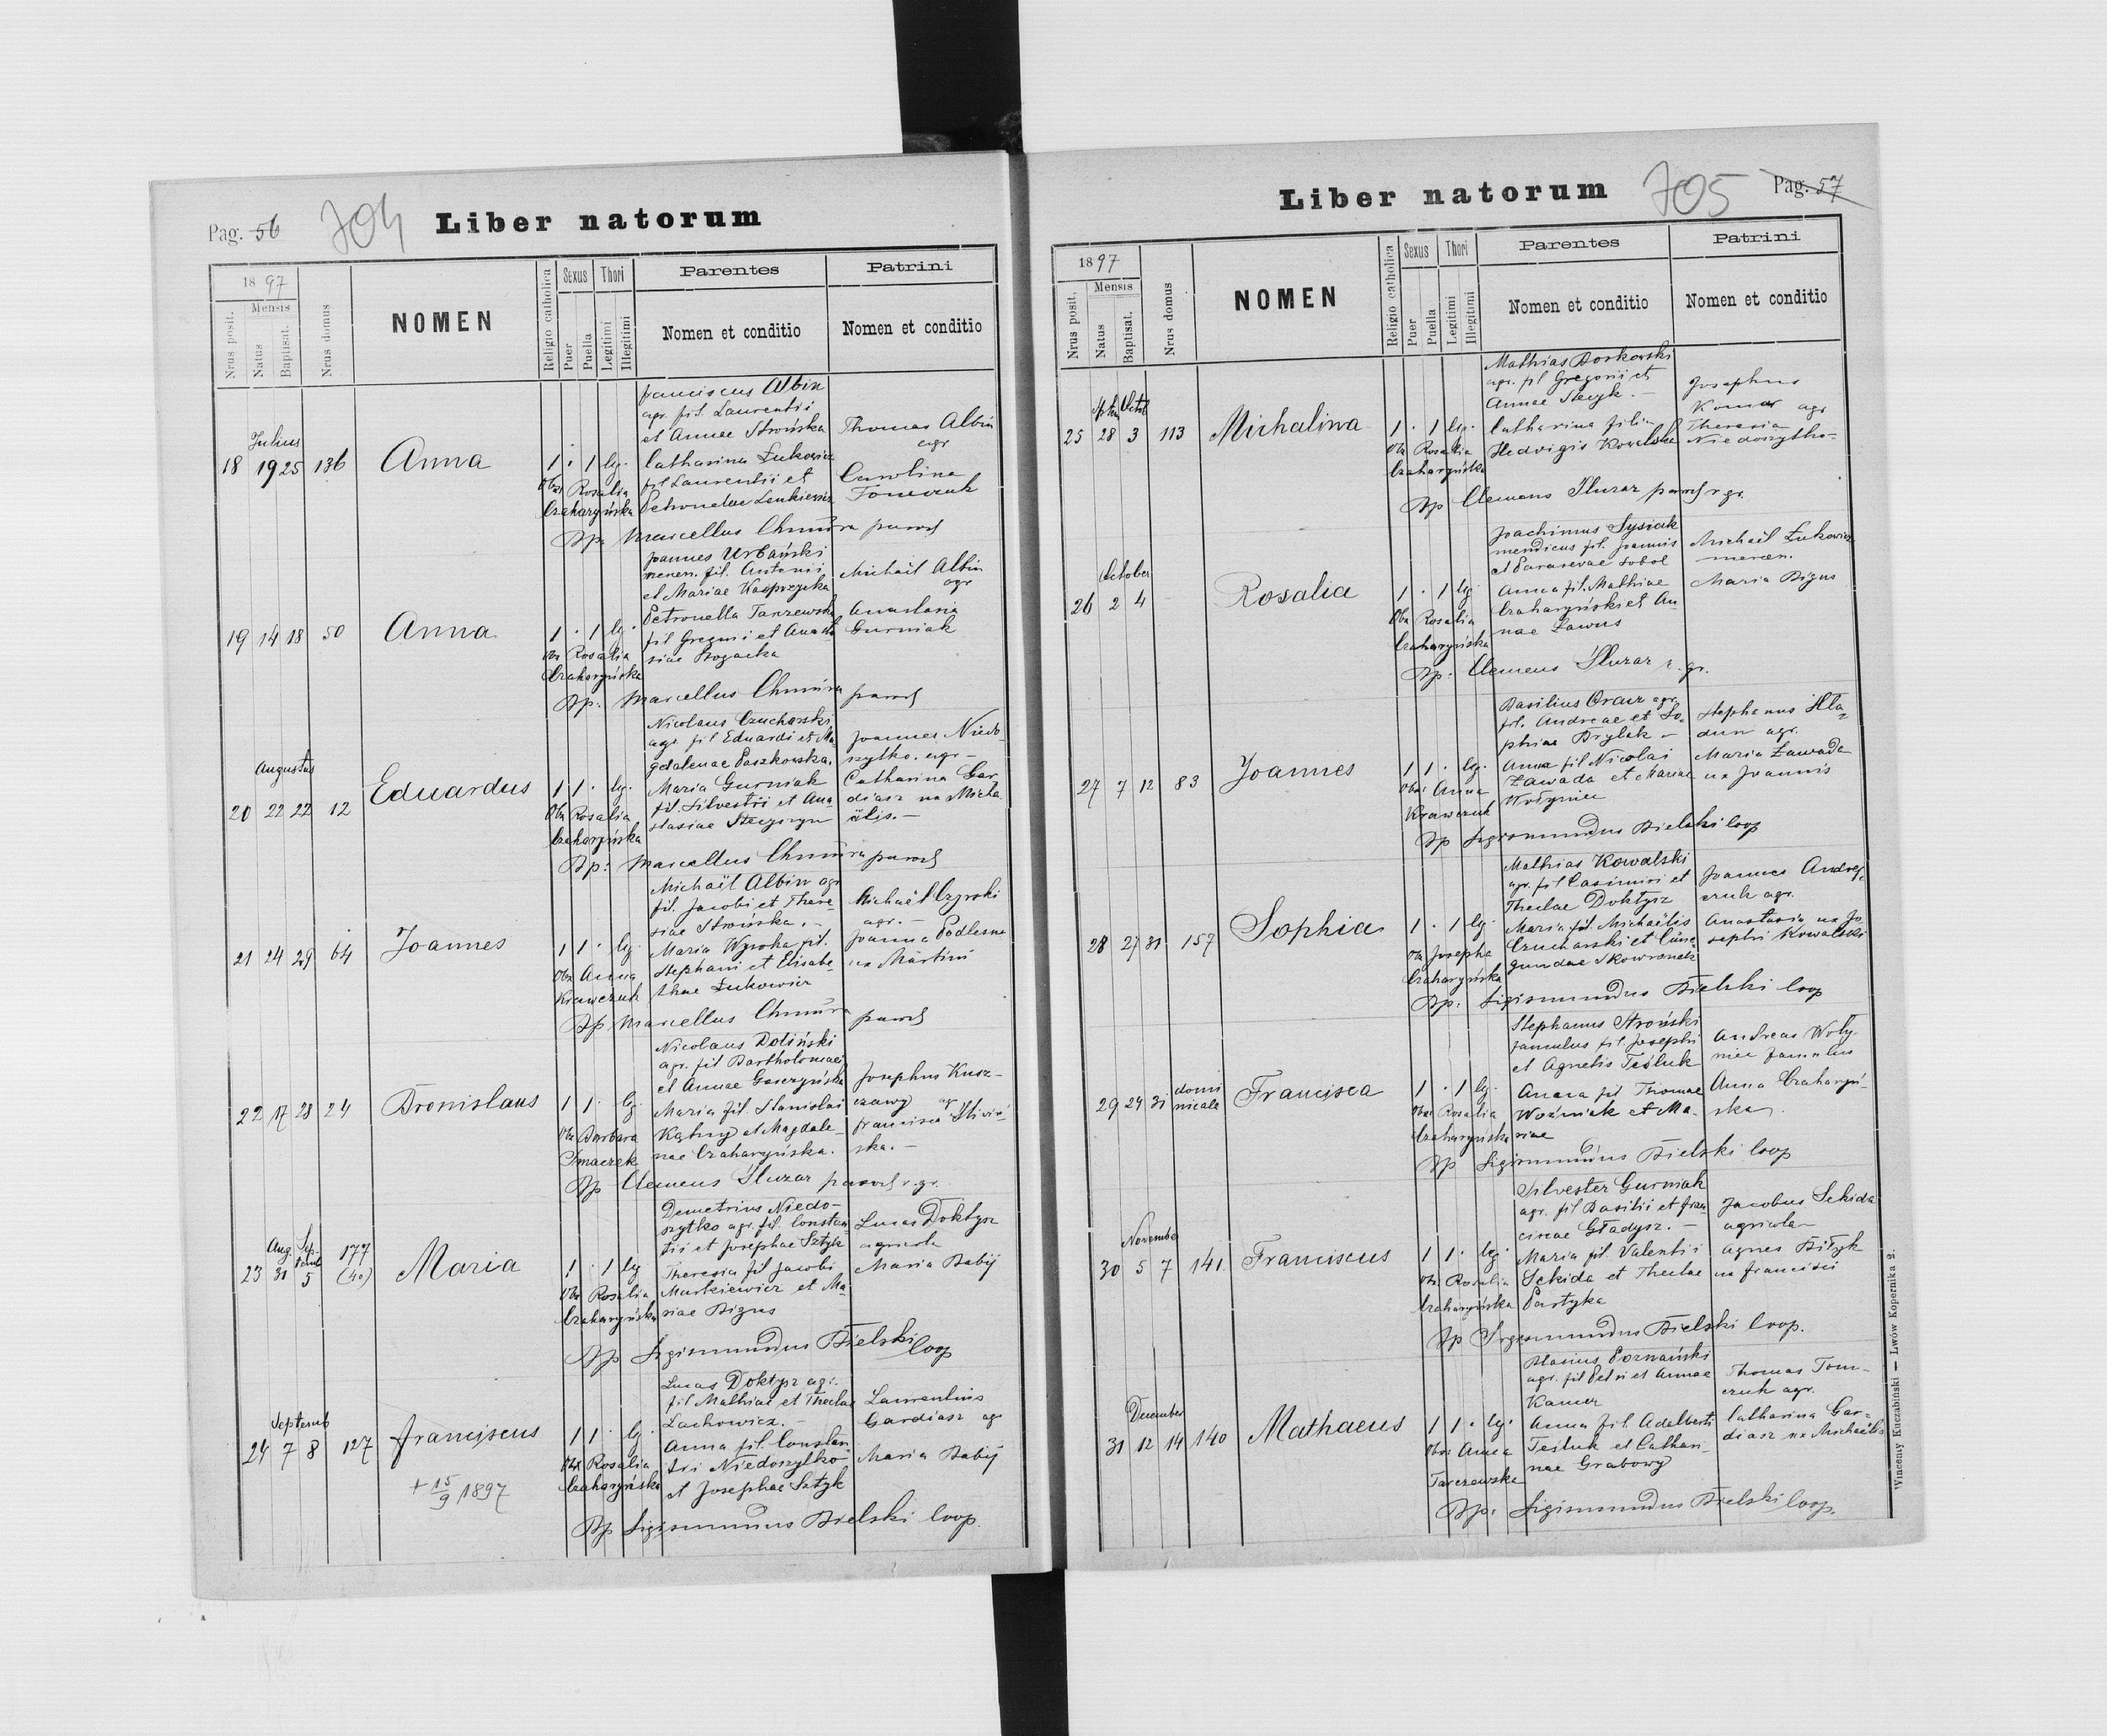 Pag. 56
704
Liber natorum
18 97
Mensis
Nrus posit.
Natus
Baptisat.
Nrus domus
NOMEN
Religio catholica
Sexus
Puer
Puella
Thori
Legitimi
Illegitimi
Parentes
Nomen et conditio
Patrini
Nomen et conditio
Julius
18 19 25 136 Anna 1 · 1 lg.
Franciscus Albin
agr. fil. Laurentii
et Annae Strońska
Catharina Łukowicz
fil Laurentii et
Petronelae Lenkiewicz
Thomas Albin
agr
Carolina
Tomczuk
Obs. Rosalia
Czaharyńska
Bp. Marcellus Chmura paroch
19 14 18 50 Anna 1 · 1 lg.
Joannes Urbański
mercen. fil. Antonii
et Mariae Kasprzycka
Petronella Tarczewska
fil Gregorii et Anasta
siae Rogacka
Michail Albin
agr
Anastasia
Gurniak
Obs Rosalia
Czaharyńska
Bp. Marcellus Chmura paroch
Augustus
20 22 22 12 Eduardus 1 1 · lg.
Nicolaus Czucharski
agr. fil Eduardi et Ma
gdalenae Paszkowska.
Maria Gurniak
fil. Silvestri et Ana
stasiae
Joannes Niedo
szytko. agr –
Catharina Gar
diasz ux Micha
ëlis. –
Obs Rosalia
Czaharyńska
Bp: Marcellus Chmura paroch
21 24 29 64 Joannes 1 1 · lg.
Michaël Albin agr
fil. Jacobi et There
siae Strońska. –
Maria Wysoka fil.
Stephani et Elisabe
thae Łukowicz
Michaël
agr. –
Joanna Podlesna
ux Martini
Obs Anna
Krawczuk
Bp Marcellus Chmura paroch
22 17 28 24 Bronislaus 1 1 · lg.
Nicolaus Doliński
agr. fil Bartholomaei
et Annae
Maria fil. Stanislai
Kątny et Magdale
nae Czaharyńska.
Josephus Kusz-
czawy agr
Francisca Śliwiń
ska. –
Obs Barbara
Smaczek
Bp Clemens Śluzar paroch r. gr.
Aug. Sep-
temb
23 31 5 177
(40) Maria 1 · 1 lg
Demetrius Niedo-
szytko agr. fil. Constan
tii et Josephae Sztyk
Theresia fil Jacobi
Murkiewicz et Ma
riae Bizus
Lucas Doktysz
agricola
Maria Babij
Obs Rosalia
Czaharyńska
Bp Sigismundus Bielski Coop
Septemb
24 7 8 127 Franciscus 1 1 · lg.
+ 15/9 1897
Lucas Doktysz agr.
fil Mathiae et Theclae
Lachowicz. –
Anna fil. Constan
tii Niedoszytko
et Josephae Sztyk
Laurentius
Gardiasz agr
Maria Babij
Obs Rosalia
Czaharyńska
Bp Sigismundus Bielski Coop.
Liber natorum
705
Pag. 57
18 97
Mensis
Nrus posit.
Natus
Baptisat.
Nrus domus
NOMEN
Religio catholica
Sexus
Puer
Puella
Thori
Legitimi
Illegitimi
Parentes
Nomen et conditio
Patrini
Nomen et conditio
Septem Octob
25 28 3 113 Michalina 1 · 1 lg.
Mathias Borkowski
agr. fil Gregorii et
Annae Stecyk. –
Catharina filia
Hedvigis Kowalska
Josephus
Komar agr
Theresia
Niedoszytko-
Obs Rosalia
Czaharyńska
Bp Clemens Śluzar paroch r. gr.
October
26 2 4 Rosalia 1 · 1 lg
Joachimus Sysiak
mendicus fil. Joannis
et Parasevae Sobol
Anna fil. Mathiae
Czaharyński et An
nae Ławus
Michail Łukowicz
mercen.
Maria Bizus
Obs Rosalia
Czaharyńska
Bp. Clemens Śluzar r. gr.
27 7 12 83 Joannes 1 1 · lg.
Basilius Oracz agr
fil. Andreae et So
phiae Brylak –
Anna fil Nicolai
Zawada et Mariae
Wołyniec
Stephanus Hla
dun agr.
Maria Zawada
ux Joannis
Obs: Anna
Krawczuk
Bp Sigismundus Bielski Coop
28 27 31 157 Sophia 1 · 1 lg.
Mathias Kowalski
agr. fil Casimiri et
Theclae Doktysz
Maria fil. Michaëlis
Czucharski et Cune
gundae Skowronek
Joannes Andrej
czuk agr.
Anastasia ux Jo
sephi Kowalski
Obs Josepha
Czaharyńska
Bp. Sigismundus Bielski Coop
29 24 31 domi
nicale Francisca 1 · 1 lg.
Stephanus Stroński
famulus fil Josephi
et Agnetis Tesluk
Anna fil Thomae
Woźniak et Ma-
riae
Andreas Woły
niec famulus
Anna Czaharyń
ska.
Obs: Rosalia
Czaharyńska
Bp Sigismundus Bielski Coop
November
30 5 7 141 Franciscus 1 1 · lg.
Silvester Gurniak
agr. fil Basilii et Fran
ciscae Gładysz. –
Maria fil. Valentii
Sekida et Theclae
Partyka
Jacobus Sekida
agricola
Agnes Biłyk
ux Francisci
Obs. Rosalia
Czaharyńska
Bp Sigismundus Bielski Coop.
December
31 12 14 140 Mathaeus 1 1 · lg.
Blasius Poznański
agr. fil Petri et Annae
Kamer
Anna fil. Adalberti
Tesluk et Cathari-
nae Grabowy
Thomas Tom-
czuk agr.
Catharina Gar-
diasz ux Michaëlis
Obs: Anna
Tarczewska
Bp. Sigismundus Bielski Coop.
Wincenty Kuczabiński — Lwów Kopernika 2.